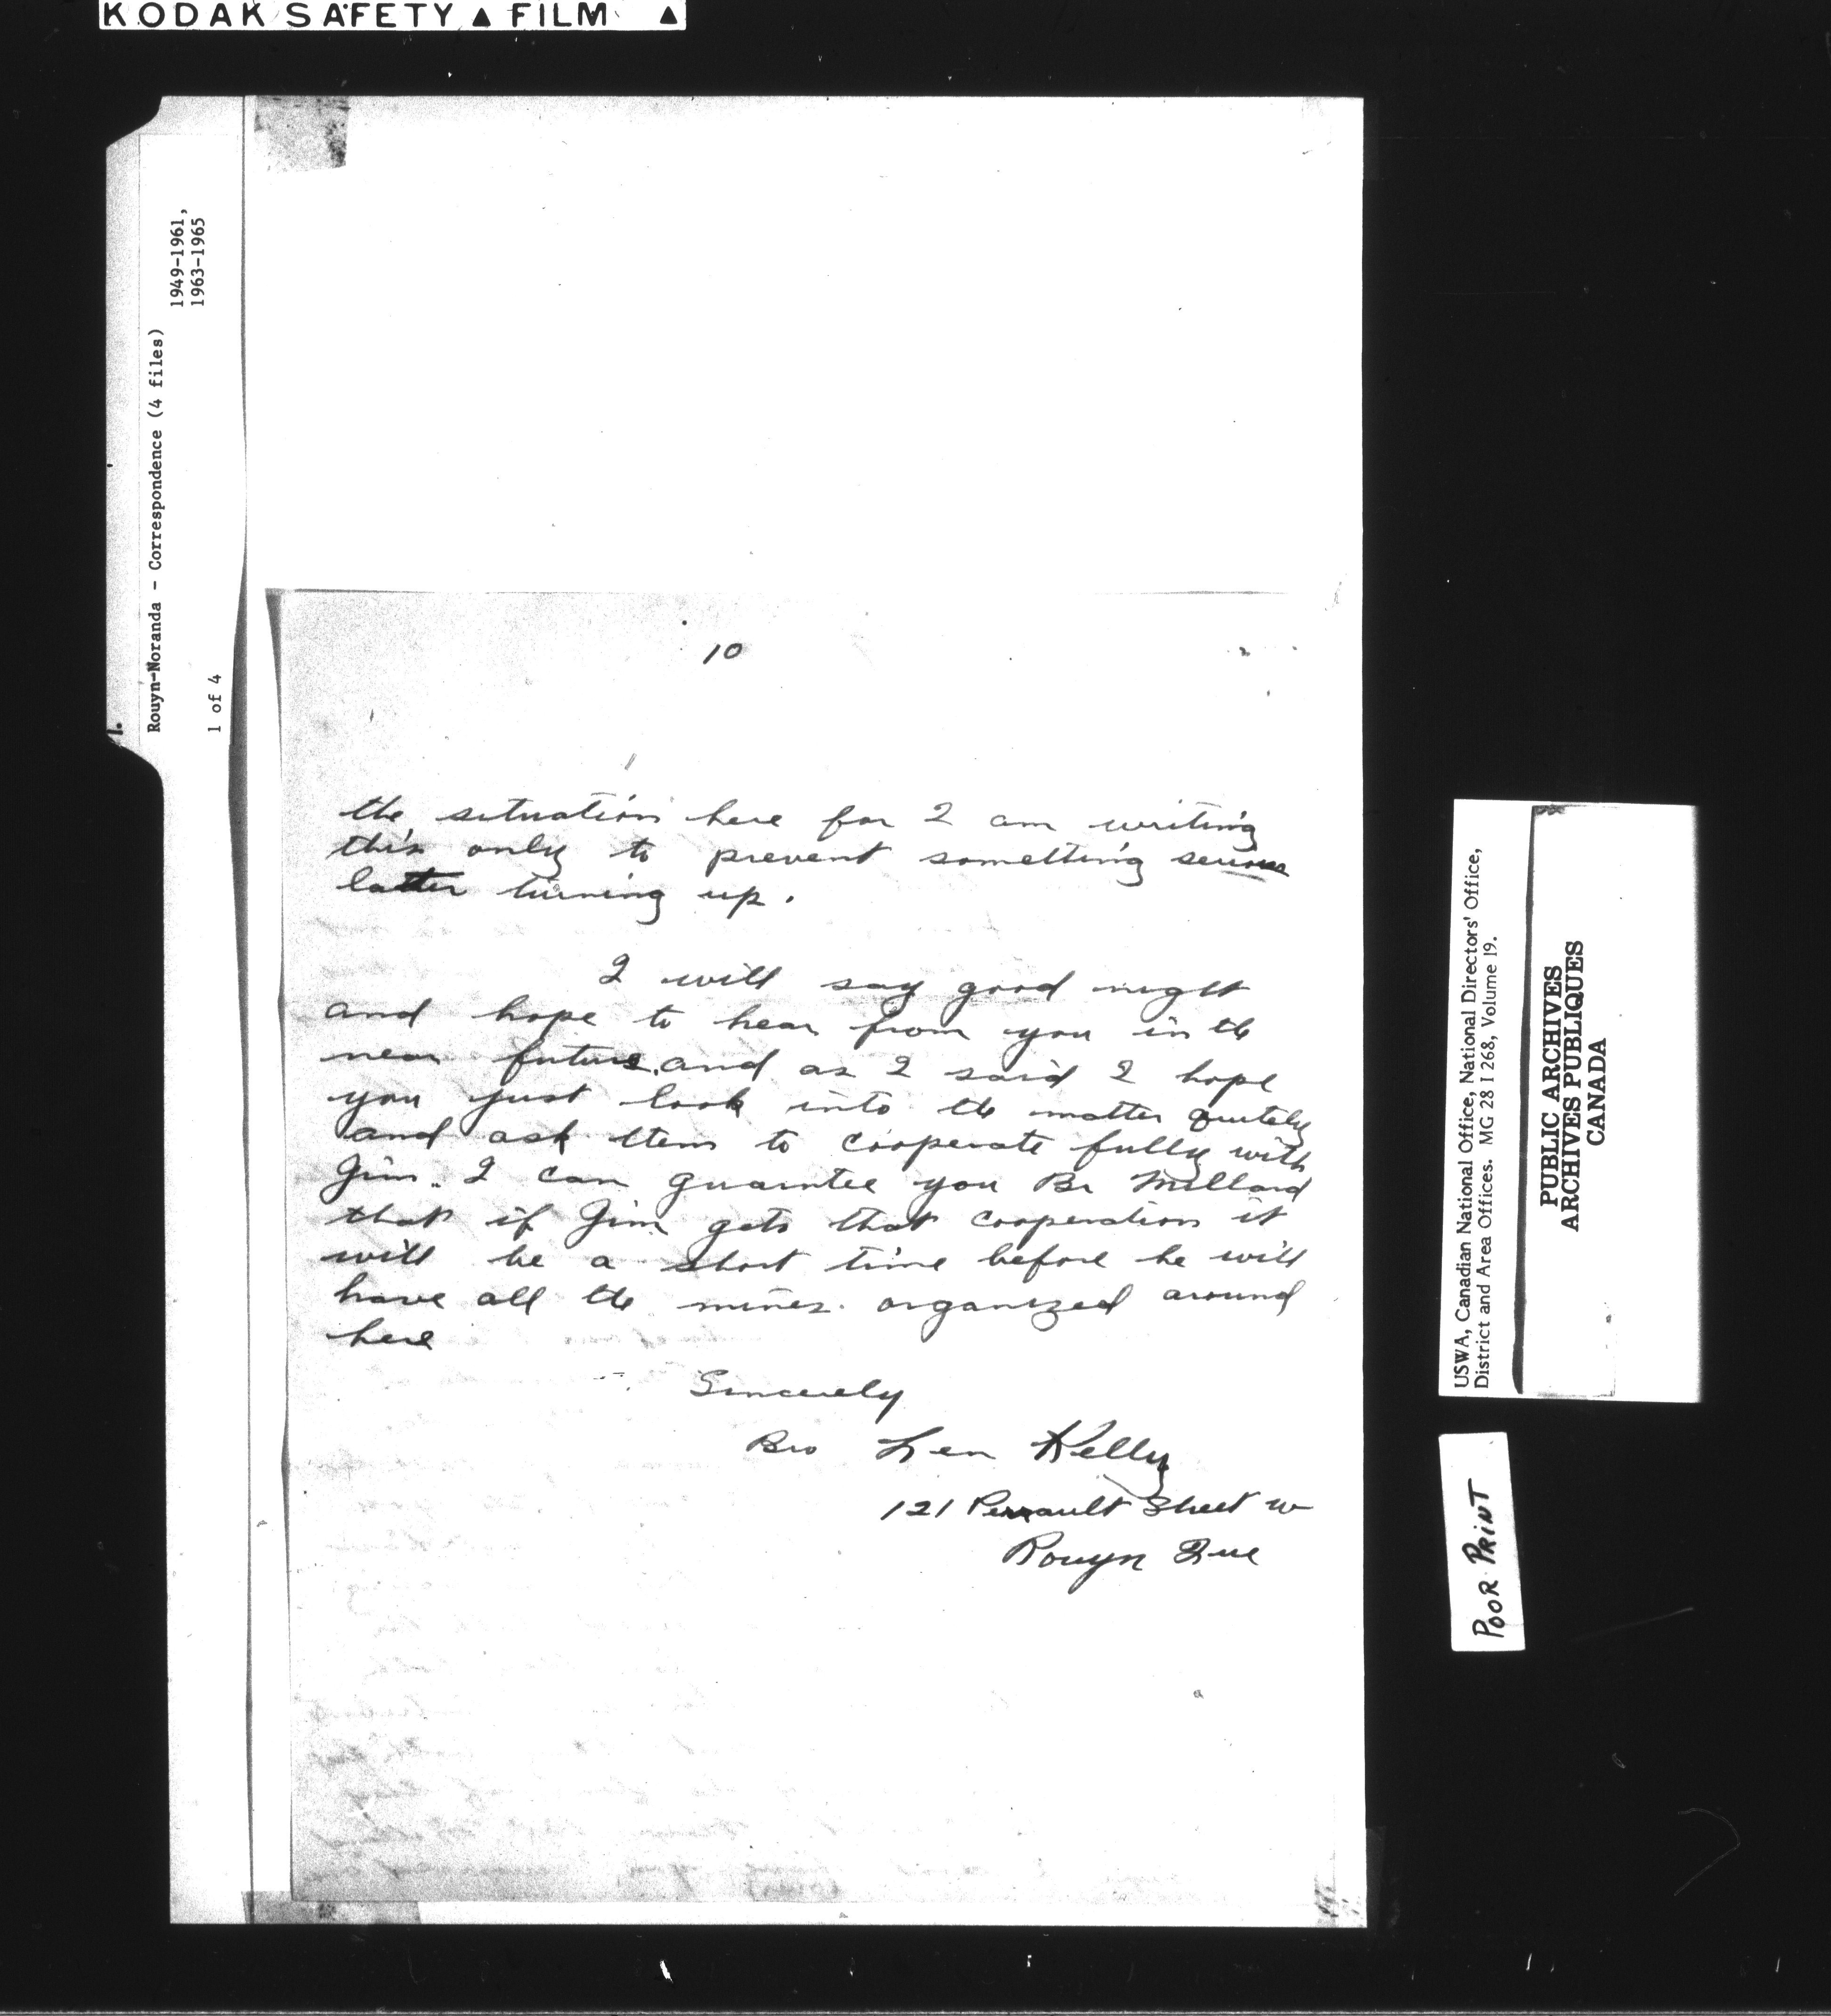 KODAK SAFETY ▲ FILM ▲
Rouyn-Noranda - Correspondence (4 files)
1949-1961,
1963-1965
1 of 4
1.
10
the situation here for I am writing
this only to prevent something serious
latter turning up.
I will say good night
and hope to hear from you in the
near future. and as I said I hope
you just look into the matter quitely
and ask them to cooperate fully with
Jim. I can guarntee you Br Millard
that if Jim gets that cooperation it
will be a short time before he will
have all the mines organized around
here
Sincerely
Bro Len Kelly
121 Perrault Street W
Rouyn Que
USWA, Canadian National Office, National Directors' Office,
District and Area Offices. MG 28 I 268, Volume 19.
PUBLIC ARCHIVES
ARCHIVES PUBLIQUES
CANADA
POOR PRINT